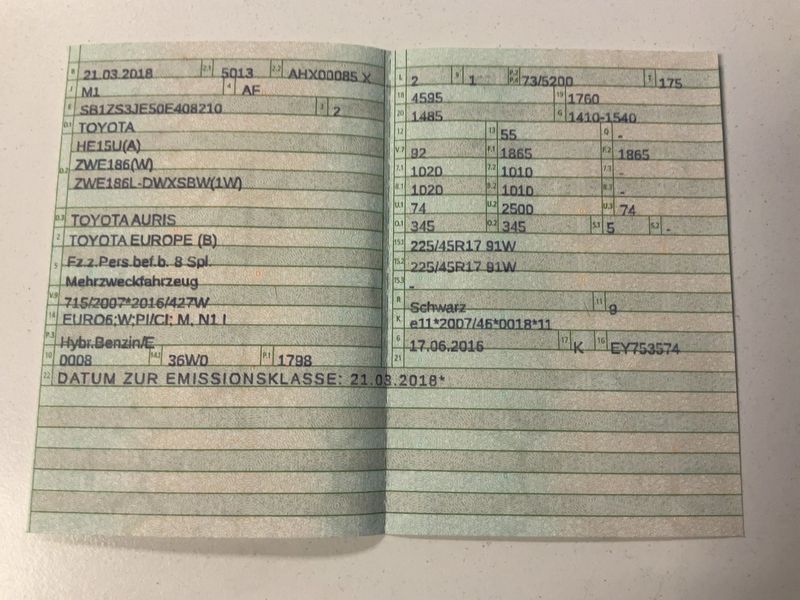 B 21.03.2018 2.1 5013 2.2 AHX00085 X
J M1 4 AF
E SB1ZS3JE50E408210 3 2
D.1 TOYOTA
HE15U(A)
D.2 ZWE186(W)
ZWE186L-DWXSBW(1W)
D.3 TOYOTA AURIS
2 TOYOTA EUROPE (B)
5 Fz.z.Pers.bef.b. 8 Spl.
Mehrzweckfahrzeug
V.9 715/2007*2016/427W
14 EURO6;W;PI/CI; M, N1 I
P.3 Hybr.Benzin/E
10 0008 14.1 36W0 P.1 1798
22 DATUM ZUR EMISSIONSKLASSE: 21.03.2018*
L 2 9 1 P.2 P.4 73/5200 T 175
18 4595 19 1760
20 1485 G 1410-1540
12 13 55 Q -
V.7 92 F.1 1865 F.2 1865
7.1 1020 7.2 1010 7.3 -
8.1 1020 8.2 1010 8.3 -
U.1 74 U.2 2500 U.3 74
O.1 345 O.2 345 S.1 5 S.2 -
15.1 225/45R17 91W
15.2 225/45R17 91W
15.3 -
R Schwarz 11 9
K e11*2007/46*0018*11
6 17.06.2016 17 K 16 EY753574
21